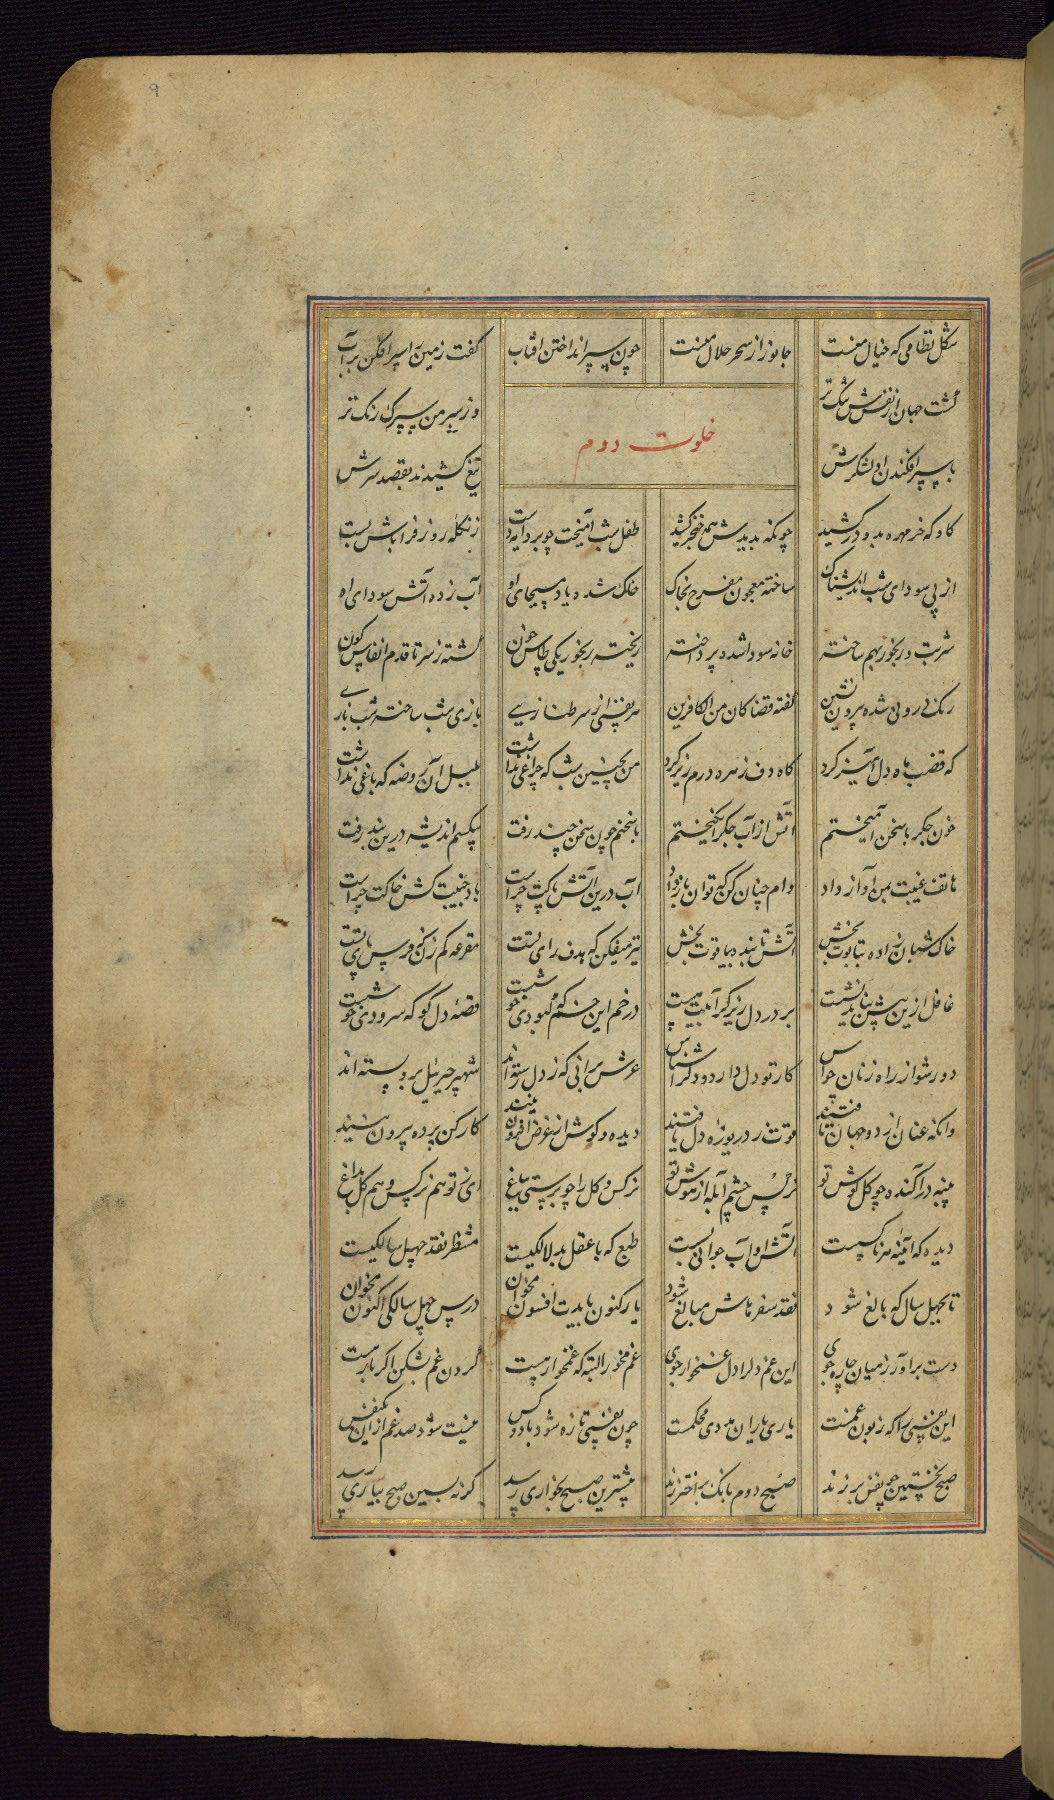 ۹
شکل نظامی که خیال منست جانور از سحر حلال منست چون سپر انداختن آفتاب گفت زمین را سپر افکن بر آب
گشت جهان از نفسش تنک تر وز سپر من سپرک رنک تر
خلوت دوم
با سپر افکندن او لشکرش تیغ کشیدند بقصد سرش
کاو که خر مهره بدو درکشید چونکه بدیدش همه خنجر کشید طفل شب آهیخت چو در دایه دست زنکله روز فرا پاش بست
از پی سودای شب اندیشناک ساخته معجون مفرح بخاک خاک شده باد مسیحای او آب زده آتش سودای او
شربت و رنجور بهم ساخته خانه سودا شده پرداخته ریخته رنجور یکی طاس خون گشته ز سر تا قدم انقاس کون
رنک درونی شده بیرون نشین گفته قضا کان من الکافرین هر نفسی از سر طنازیی بازی شب ساخته شب بازیی
که قصب ماه دل آمیز کرد کاه دف زهره درم ریز کرد من بچنین شب که چراغی نداشت بلبل آن روضه که باغی نداشت
خون جکر با سخن آمیختم آتش از آب جکر انکیختم با سخنم چون سخن چند رفت بیکسم اندیشه درین پند رفت
هاتف غیبت بمن آواز داد وام چنان کن که توان باز داد آب درین آتش پاکت چراست باد جنیبت کش خاکت چراست
خاک بتابوت بخش آتش تابنده بیاقوت بخش تیر میفکن که هدف رای تست مقرعه کم زن که فرس پای تست
غافل ازین پیش نباید نشست بر در دل ریز کر آبیت هست در خم این خم که کبودی خوشست قصه دل کو که سرودی خوشست
دور شو از راه زنان حواس کار تو دل دارد و دل را شناس عرش پرانی که ز دل رسته اند شهپر جبریل برو بسته اند
وانکه عنان از دو جهان تافتند قوت ز دریوزه دل یافتند دیده و کوش از غرض افزونیند کارکن پرده بیرونیند
پنبه در آکنده چو کل کوش تو نرکس چشم آبله هوش تو نرکس و کل را چو پرستی بباغ ای ز تو هم نرکس و هم کل بداغ
دیده که آئینه هر ناکسیست آتش او آب جوانی بست طبع که با عقل بدلالکیست منتظر نقد چهل سالکیست
تا بچهل سال که بالغ شود نقد سفرهاش مبالغ شود یار کنون بایدت افسون مخوان درس چهل سالکی اکنون مخوان
دست برآور ز میان چاره جوی این غم دل را دل غمخوار جوی غم مخور البته که غمخوار هست کردن غم بشکن اکر یار هست
این نفسی را که زبون غمست یاری یاران مددی محکمست چون نفسی تازه شود با دو کس نیست شود صد غم از این یک نفس
صبح نخستین چو نفس برزند صبح دوم بانک بر اختر زند پیشترین صبح بخواری رسد کر نه پسین صبح بیاری رسد